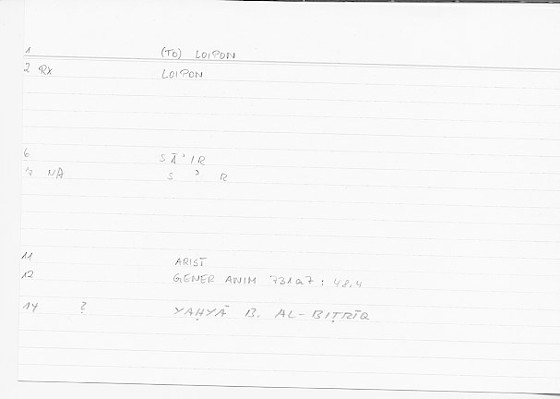 1 (TO) LOIPON
2 RX LOIPON
6 SĀʾIR
7 NA S ʾ R
11 ARIST
12 GENER ANIM 731a7 : 48,4
14 ? YAḤYĀ B. AL-BIṬRĪQ